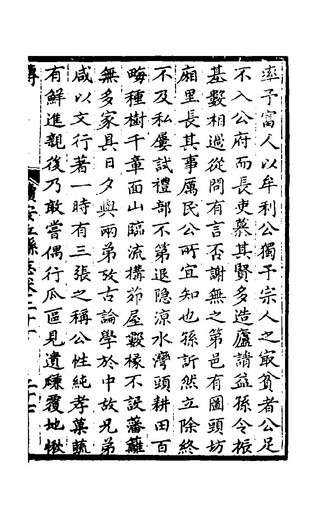 率予富人以牟利公獨予宗人之冣貧者公足
不入公府而長吏慕其賢多造廬請益孫令振
基數相過從問有言否謝無之第邑有圖頭坊
廂里長其事厲民公所宜知也孫訢然立除終
不及私屢試禮部不第退隱涼水灣頭耕田百
畮種樹千章面山臨流搆茆屋數椽不設藩籬
無多家具日夕與兩弟攷古論學於中故兄弟
咸以文行著一時有三張之稱公性純孝菓蔬
有鮮進觀後乃敢嘗偶行瓜區見遺覆地愀
傳